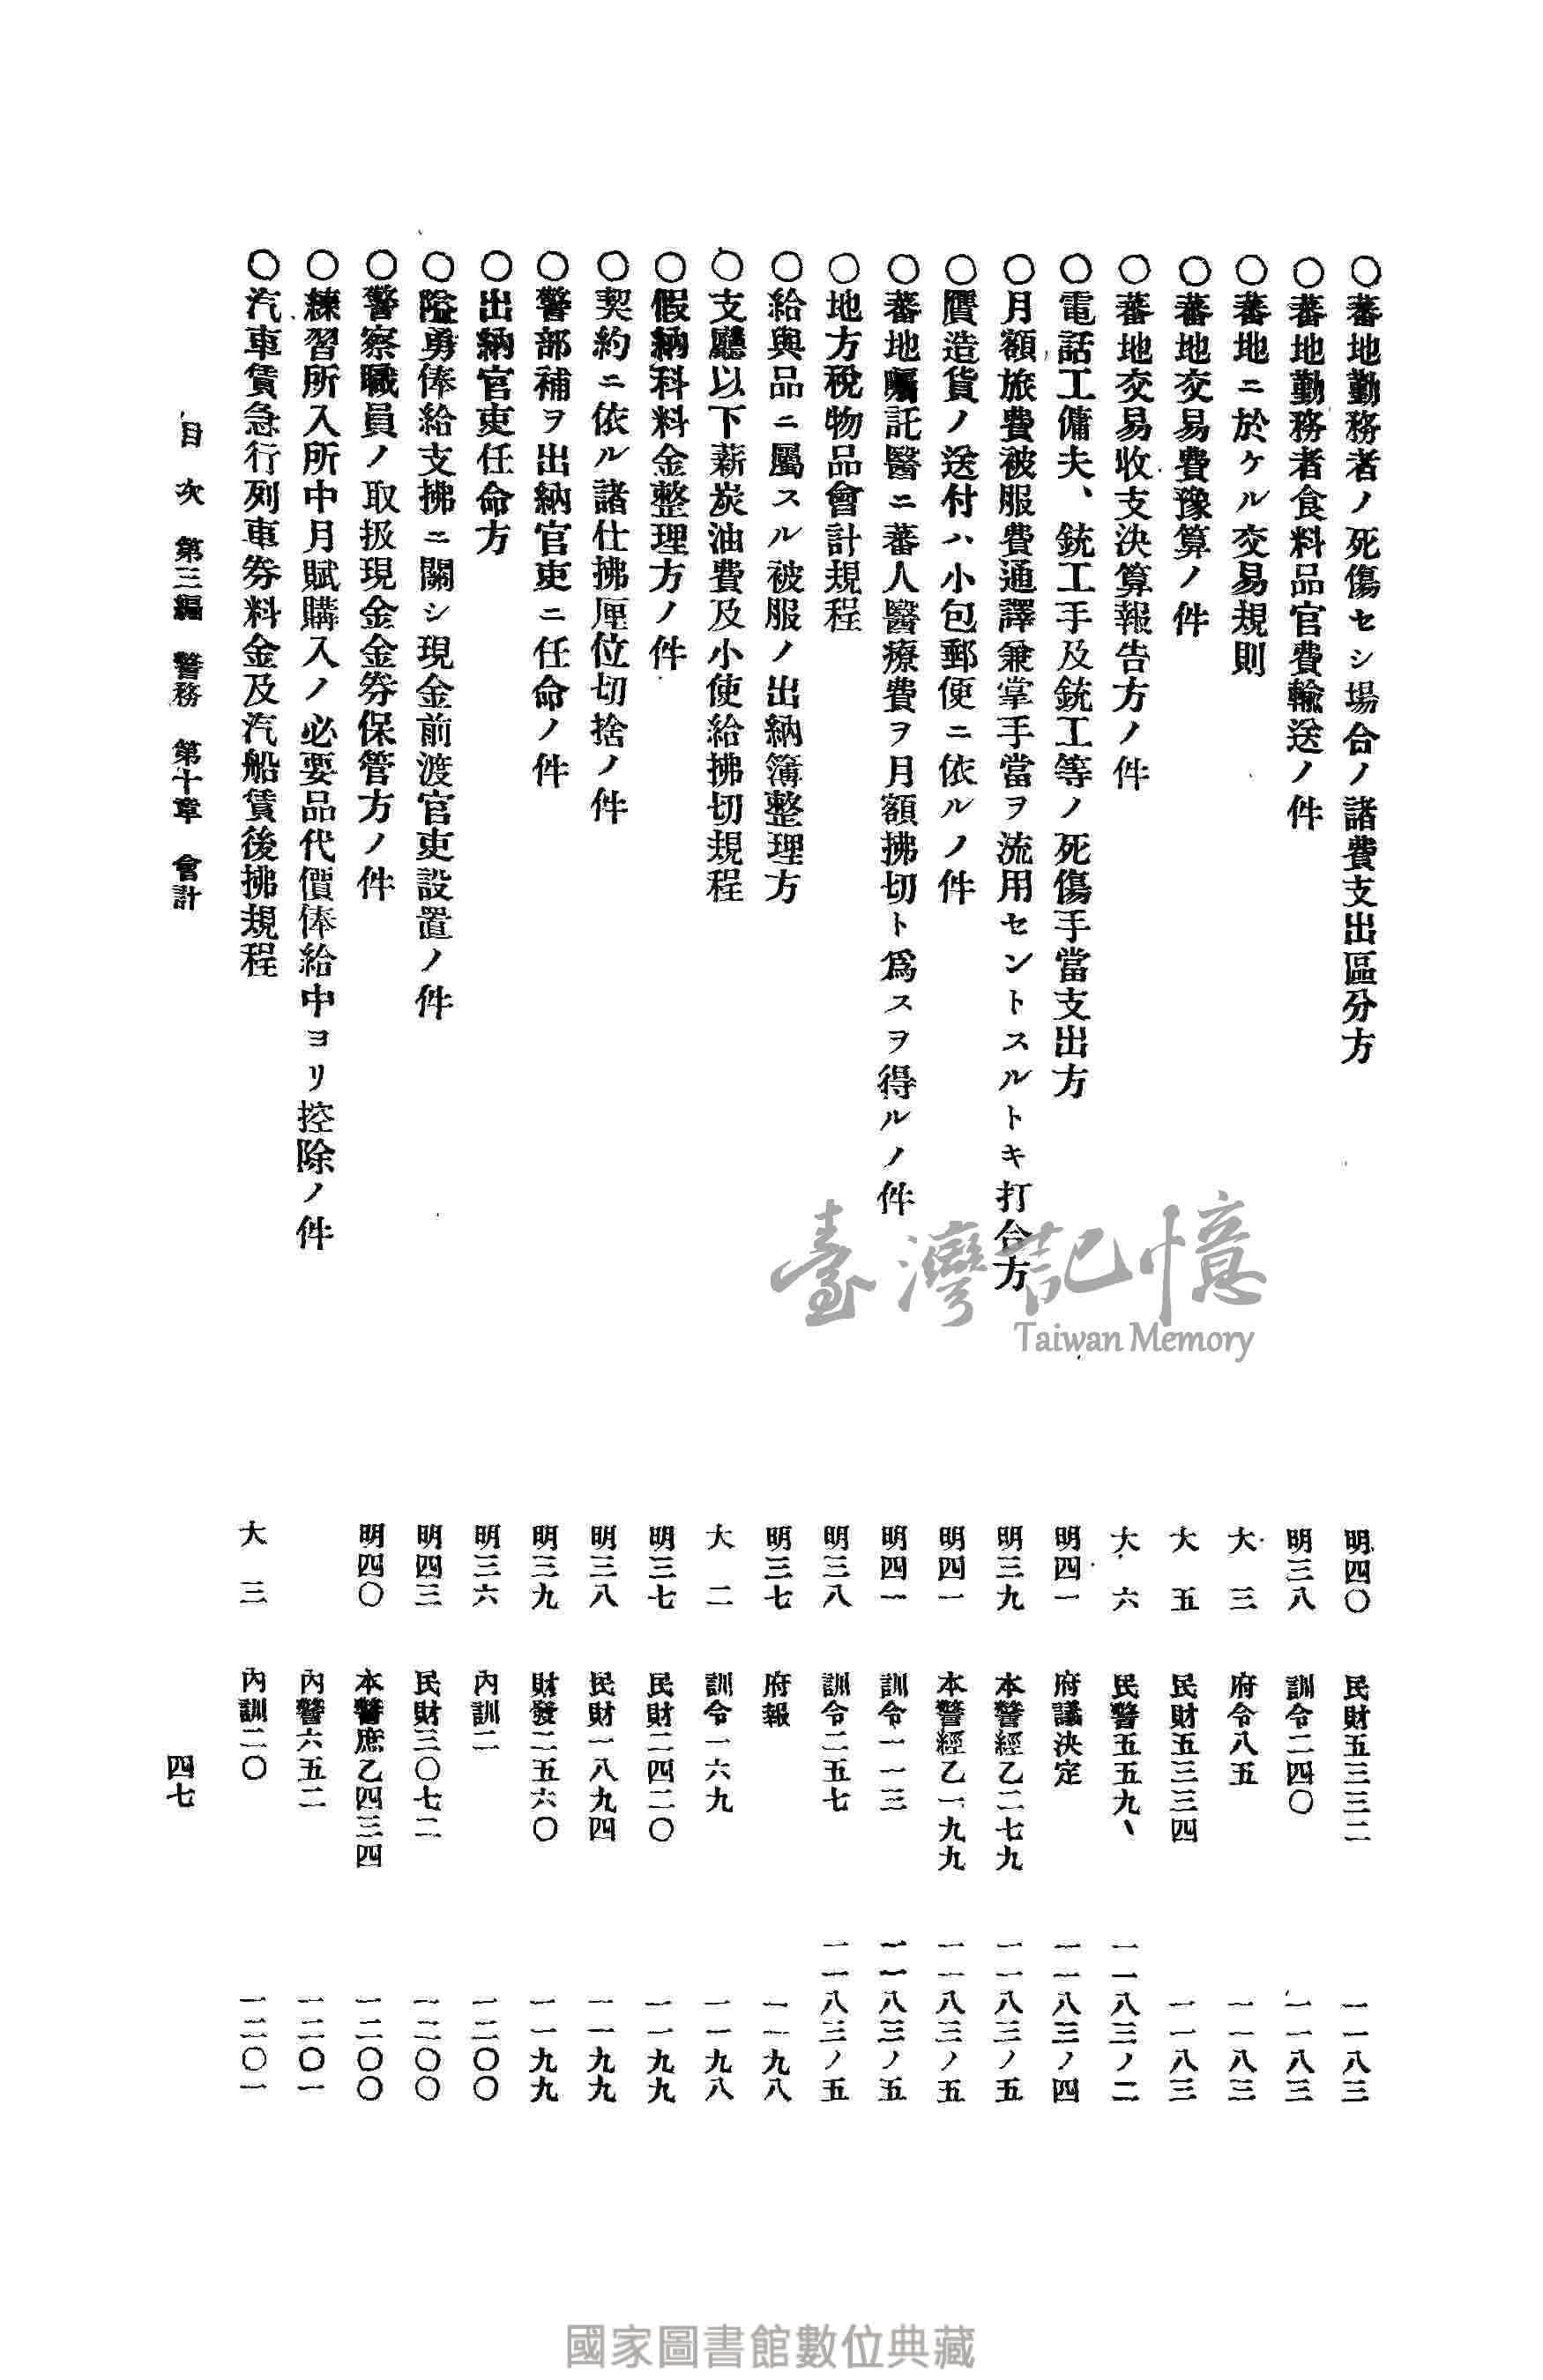 ○蕃地勤務者ノ死傷セシ場合ノ諸費支出區分方 明四〇 民財五三三二 一一八三
○蕃地勤務者食料品官費輸送ノ件 明三八 訓令二四〇 一一八三
○蕃地ニ於ケル交易規則 大三 府令八五 一一八三
○蕃地交易費豫算ノ件 大五 民財五三三四 一一八三
○蕃地交易收支決算報告方ノ件 大六 民警五五九、 一一八三ノ二
○電話工傭夫、銃工手及銃工等ノ死傷手當支出方 明四一 府議決定 一一八三ノ四
○月額旅費被服費通譯兼掌手當ヲ流用セントスルトキ打合方 明三九 本警經乙二七九 一一八三ノ五
○贋造貨ノ送付ハ小包郵便ニ依ルノ件 明四一 本警經乙一九九 一一八三ノ五
○蕃地囑託醫ニ蕃人醫療費ヲ月額拂切ト爲スヲ得ルノ件 明四一 訓令一一三 一一八三ノ五
○地方稅物品會計規程 明三八 訓令二五七 一一八三ノ五
○給與品ニ屬スル被服ノ出納簿整理方 明三七 府報 一一九八
○支廳以下薪炭油費及小使給拂切規程 大二 訓令一六九 一一九八
○假納科料金整理方ノ件 明三七 民財二四二〇 一一九九
○契約ニ依ル諸仕拂厘位切捨ノ件 明三八 民財一八九四 一一九九
○警部補ヲ出納官吏ニ任命ノ件 明三九 財發二五六〇 一一九九
○出納官吏任命方 明三六 內訓二 一二〇〇
○隘勇俸給支拂ニ關シ現金前渡官吏設置ノ件 明四三 民財三〇七二 一二〇〇
○警察職員ノ取扱現金金券保管方ノ件 明四〇 本警庶乙四三四 一二〇〇
○練習所入所中月賦購入ノ必要品代價俸給中ヨリ控除ノ件 內警六五二 一二〇一
○汽車賃急行列車券料金及汽船賃後拂規程 大三 內訓二〇 一二〇一
目次 第三編 警務 第十章 會計 四七
臺灣記憶
Taiwan Memory
國家圖書館數位典藏